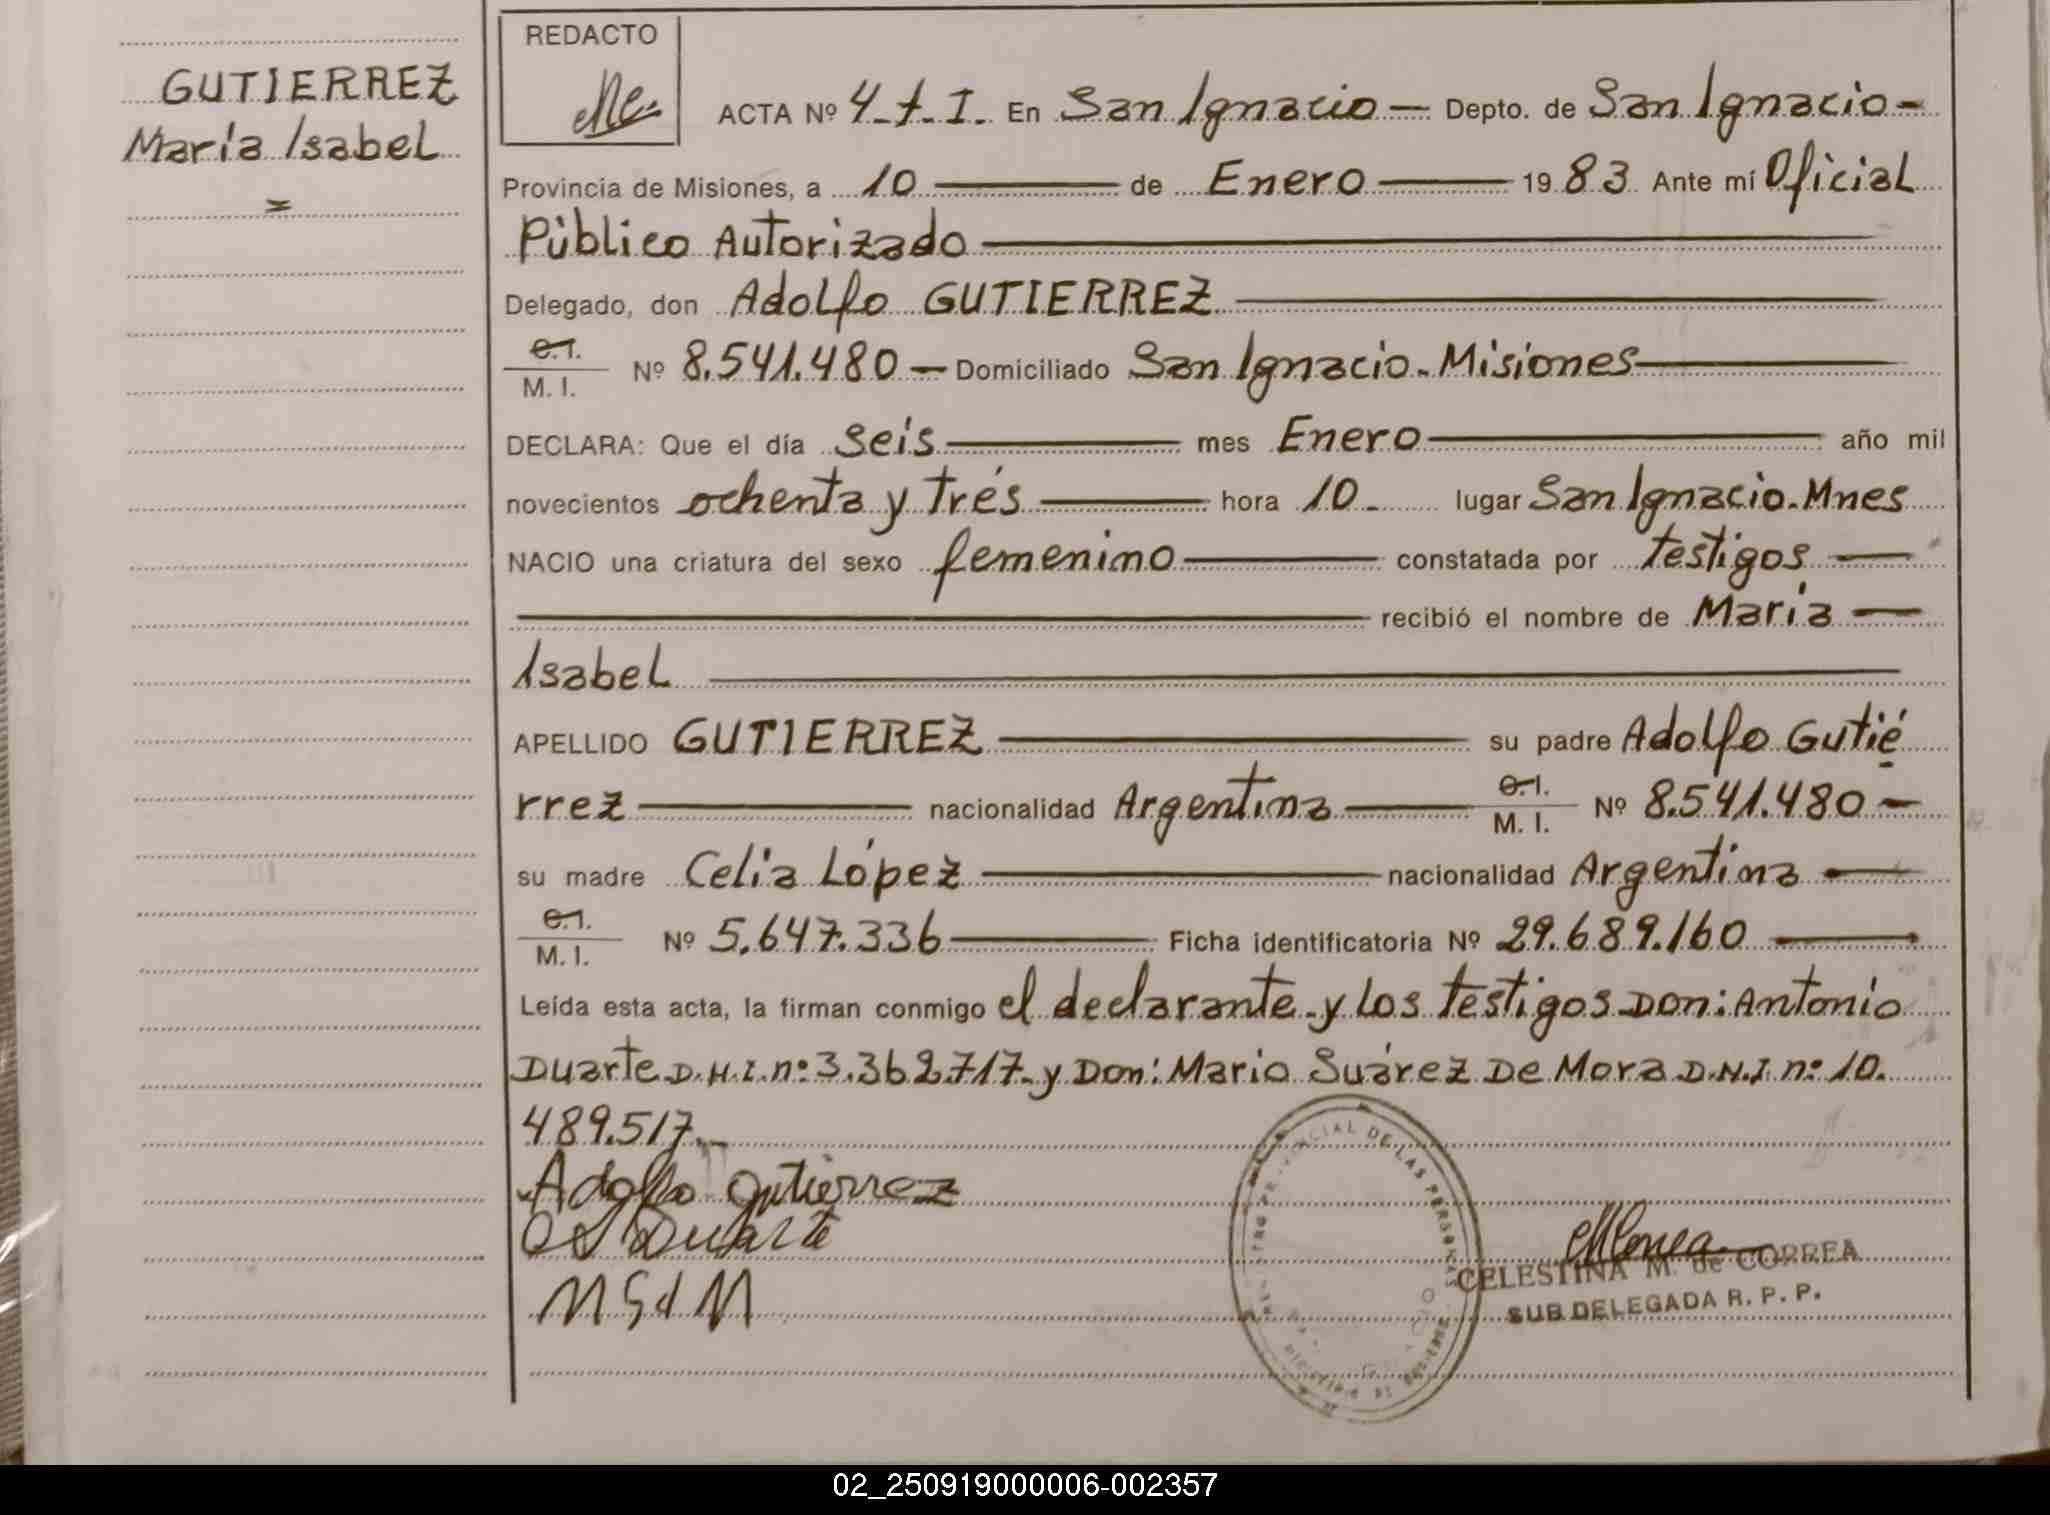 GUTIERREZ
María Isabel
=
REDACTO
ACTA Nº 4-1-I. En San Ignacio — Depto. de San Ignacio -
Provincia de Misiones, a 10 — de Enero — 1983 Ante mí Oficial
Público Autorizado —
Delegado, don Adolfo GUTIERREZ —
C.I.
M. I. Nº 8.541.480 — Domiciliado San Ignacio. Misiones —
DECLARA: Que el día seis — mes Enero — año mil
novecientos ochenta y trés — hora 10 - lugar San Ignacio. Mnes
NACIO una criatura del sexo femenino — constatada por testigos —
— recibió el nombre de María —
Isabel —
APELLIDO GUTIERREZ — su padre Adolfo Gutié
rrez — nacionalidad Argentina — C.I. M. I. Nº 8.541.480 —
su madre Celia López — nacionalidad Argentina —
C.I.
M. I. Nº 5.647.336 — Ficha identificatoria Nº 29.689.160 —
Leída esta acta, la firman conmigo el declarante y los testigos Don: Antonio
Duarte D.N.I. nº: 3.362.717. y Don: Mario Suárez De Mora D.N.I. nº 10.
489.517.-
Adolfo Gutierrez
Duarte
M S d M
PROVINCIAL DE LAS PERSONAS
CELESTINA M. de CORREA
SUB DELEGADA R. P. P.
02_250919000006-002357